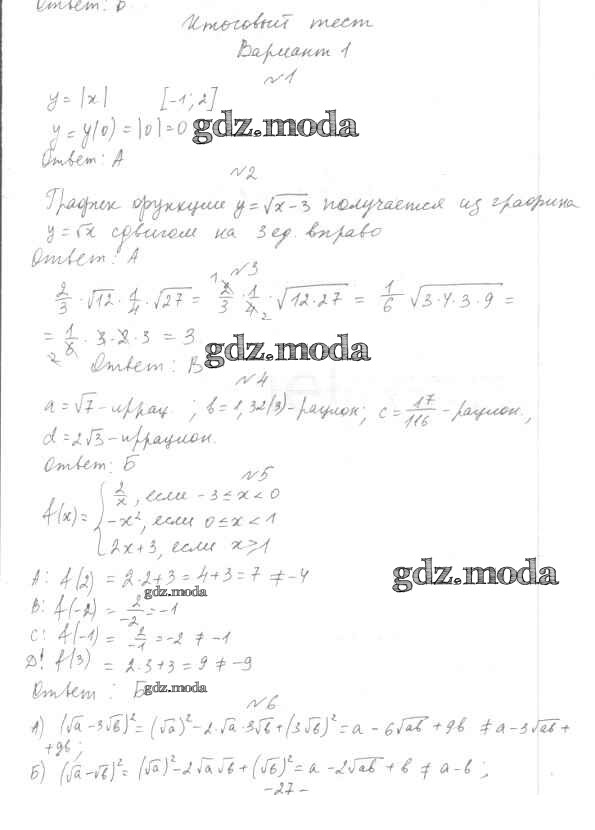 Ответ: В
Итоговый тест
Вариант 1
№1
y = |x| [-1; 2]
y = y(0) = |0| = 0 gdz.moda
Ответ: А
№2
График функции y = √(x-3) получается из графика
y = √x сдвигом на 3 ед. вправо
Ответ: А
№3
2/3 · √12 · 1/4 · √27 = 2/3 · 1/4 · √(12·27) = 1/6 √(3·4·3·9) =
= 1/6 · 3 · 2 · 3 = 3
Ответ: В gdz.moda
№4
a = √7 - иррац.; b = 1,32(3) - рацион; c = 17/116 - рацион.,
d = 2√3 - иррацион.
Ответ: Б
№5
f(x) = { 2/x, если -3 ≤ x < 0
-x², если 0 ≤ x < 1
2x+3, если x ≥ 1
А: f(2) = 2·2+3 = 4+3 = 7 ≠ -4 gdz.moda
gdz.moda
В: f(-2) = 2/-2 = -1
С: f(-1) = 2/-1 = -2 ≠ -1
Д: f(3) = 2·3+3 = 9 ≠ -9
Ответ: Б gdz.moda
№6
А) (√a - 3√b)² = (√a)² - 2·√a·3√b + (3√b)² = a - 6√ab + 9b ≠ a - 3√ab +
+ 9b;
Б) (√a - √b)² = (√a)² - 2√a√b + (√b)² = a - 2√ab + b ≠ a - b;
- 27 -